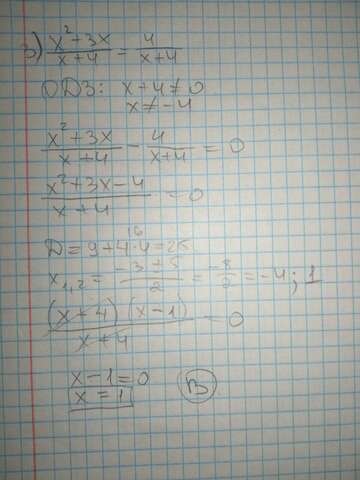 3) (x² + 3x)/(x + 4) = 4/(x + 4)
ОДЗ: x + 4 ≠ 0
x ≠ -4
(x² + 3x)/(x + 4) - 4/(x + 4) = 0
(x² + 3x - 4)/(x + 4) = 0
16
D = 9 + 4·4 = 25
x₁,₂ = (-3 ± 5)/2 = -8/2 = -4; 1
(x + 4)(x - 1)/(x + 4) = 0
x - 1 = 0 В
x = 1